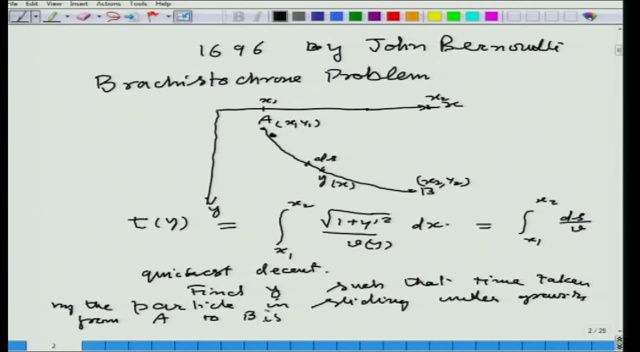 File Edit View Insert Actions Tools Help
1696 By John Bernoulli
Brachistochrone Problem
x₁ x₂ x
A (x₁, y₁)
ds
y(x)
(x₂, y₂)
B
y
t(y) = ∫ₓ₁ˣ² √(1+y'²) / v(y) dx = ∫ₓ₁ˣ² ds/v
quickest decent.
Find y such that time taken
by the particle in sliding under gravity
from A to B is
2 / 25
2